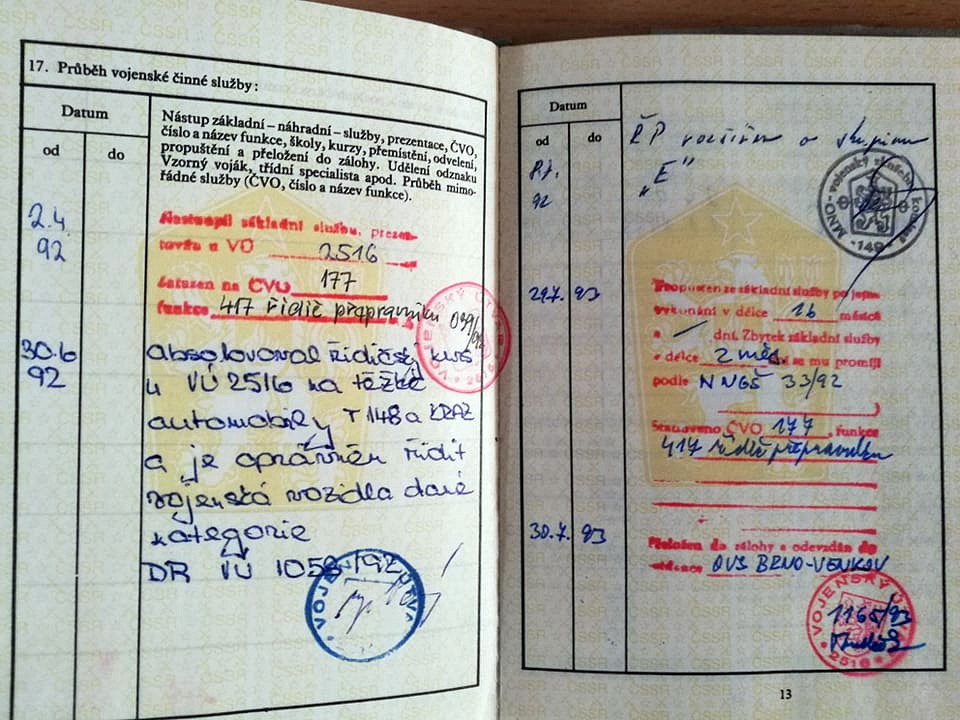 17. Průběh vojenské činné služby:
Datum
od
do
Nástup základní – náhradní – služby, prezentace, ČVO,
číslo a název funkce, školy, kurzy, přemístění, odvelení,
propuštění a přeložení do zálohy. Udělení odznaku
Vzorný voják, třídní specialista apod. Průběh mimo-
řádné služby (ČVO, číslo a název funkce).
2.4.
92
Nastoupil základní službu, prezen-
tován u VÚ 2516
Zařazen na ČVO 177
funkce 417 řidič přepravníku 039/92
VOJENSKÝ ÚTVAR
2516
30.6
92
absolvoval řidičský kurs
u VÚ 2516 na těžké
automobily T 148 a KRAZ
a je oprávněn řídit
vojenská vozidla dané
kategorie
DR VÚ 1058/92
VOJENSKÝ ÚTVAR
Datum
od
do
92
ŘP rozšířen o skupinu
"E"
MNO-vojenský zkušební komisař
149
29.7. 93
Propuštěn ze základní služby po jejím
vykonání v délce 16 měsíců
a — dní. Zbytek základní služby
v délce 2 měs. se mu promíjí
podle NNGŠ 33/92
Stanoveno ČVO 177, funkce
417 řidič přepravníku
30.7. 93
Přeložen do zálohy a odevzdán do
evidence OVS BRNO-VENKOV
VOJENSKÝ ÚTVAR
2516
1165/93
13